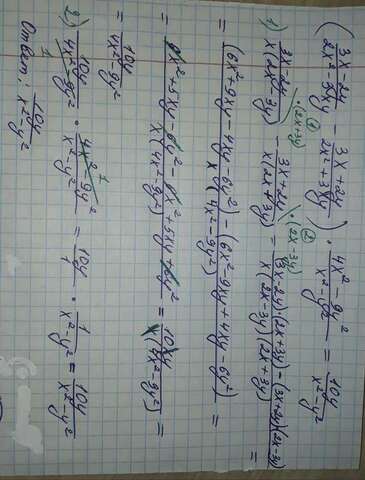 (3x-2y/2x²-3xy - 3x+2y/2x²+3xy) · 4x²-9y²/x²-y² = 10y/x²-y²
1) 3x-2y/x(2x-3y) ·(2x+3y) - 3x+2y/x(2x+3y) ·(2x-3y) = (3x-2y)·(2x+3y)-(3x+2y)(2x-3y)/x(2x-3y)(2x+3y) =
= (6x²+9xy-4xy-6y²)-(6x²-9xy+4xy-6y²)/x(4x²-9y²) =
= 6x²+5xy-6y²-6x²+5xy+6y²/x(4x²-9y²) = 10xy/x(4x²-9y²) =
= 10y/4x²-9y²
2) 10y/4x²-9y² · 4x²-9y²/x²-y² = 10y/1 · 1/x²-y² = 10y/x²-y²
Ответ: 10y/x²-y²